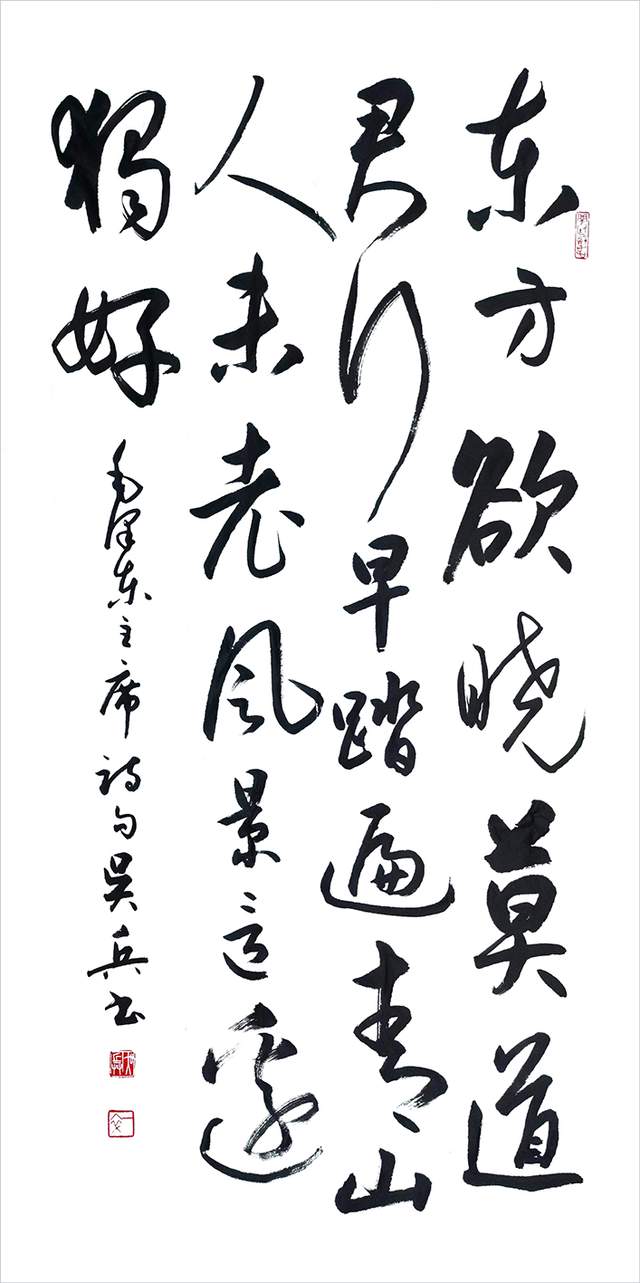 东方欲晓莫道
君行早踏遍青山
人未老风景这边
獨好
毛泽东主席诗句吴兵书